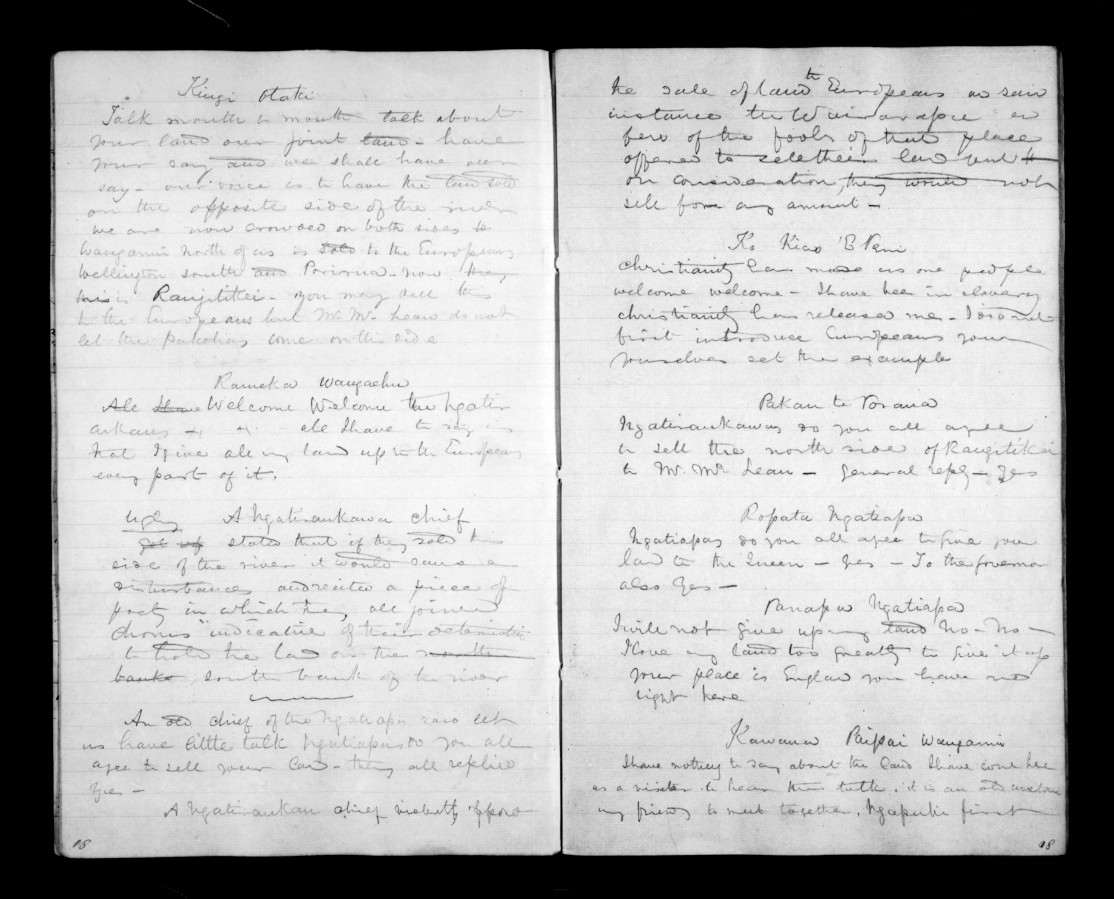 Kingi Otaki
Talk mouth to mouth talk about
your land our joint land - have
your say and we shall have our
say - our voice is to have the land sold
on the opposite side of the river
we are now crowded on both sides to
Wanganui north of us is sold to the Europeans
Wellington south and Porirua - now they
Rangitikei - you may sell this
to the Europeans but Mr McLean do not
let the Pakehas come on this side
Rameka Wangaehu
All I have Welcome Welcome the Ngatir
aukawas all I have to say is
that I give all my land up to the Europeans
every part of it.
A Ngatiraukawa chief
got up stated that if they sold this
side of the river it would cause a
disturbance and recited a piece of
poetry in which they all joined
chorus indicative of their determination
to hold the land on the northern
banks south bank of the river
An old chief of the Ngatiapa said let
us have little talk Ngatiapas do you all
agree to sell your land - they all replied
Yes -
A Ngatiraukau chief violently opposed
the sale of land to Europeans and said
instance the Wairarapa a
few of the fools of that place
offered to sell their land but
on consideration they would not
sell for any amount -
Christianity has made us one people
welcome welcome - I have been in slavery
christianity has released me - I did not
first introduce Europeans your
yourselves set the example
Pakau te
Ngatiraukawas do you all agree
to sell the north side of Rangitikei
to Mr McLean - General reply - Yes
Ropata Ngatiapa
Ngatiapas do you all agree to give your
land to the Queen - Yes - To the Governor
also Yes -
Panapa Ngatiapa
I will not give up my land No - No -
I love my land too greatly to give it up
your place is England you have no
right here
Kawana Paipai Wanganui
I have nothing to say about the land I have come here
as a visitor to hear the talk. it is an old custom
my friends to meet together. Ngapuhi first
98
98